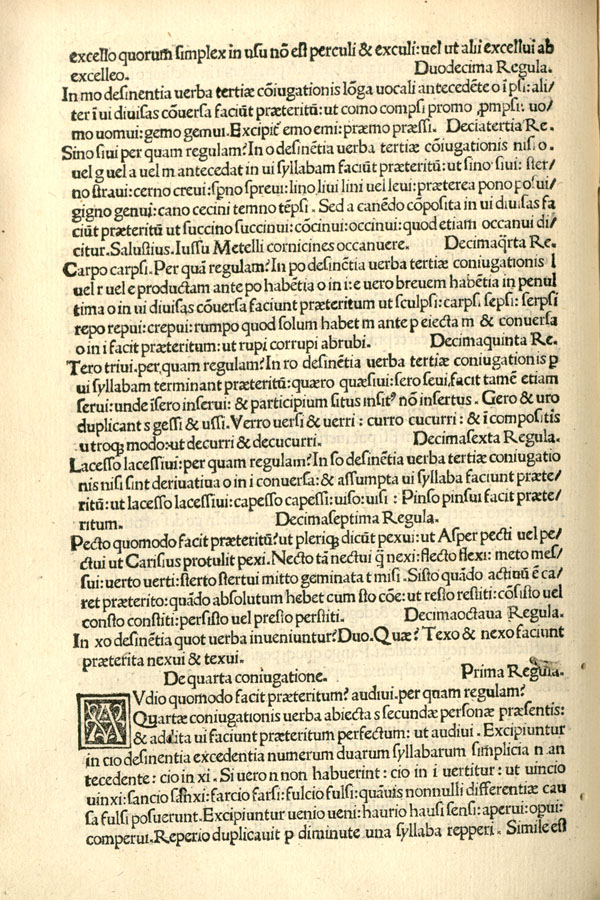 excello quorum simplex in usu nō est perculi & exculi: uel ut alii excellui ab
excelleo. Duodecima Regula.
In mo desinentia uerba tertiæ cōiugationis lōga uocali antecedēte o ī psi: ali/
ter ī ui diuisas cōuersa faciūt præteritū: ut como compsi promo ꝓmpsi: uo/
mo uomui: gemo gemui. Excipit̃ emo emi: præmo præssi. Deciatertia Re.
Sino siui per quam regulam? In o desinētia uerba tertiæ cōiugationis nisi o.
uel g uel a uel m antecedat in ui syllabam faciūt præteritū: ut sino siui: ster/
no straui: cerno creui: spno spreui: lino liui lini uel leui: præterea pono posui/
gigno genui: cano cecini temno tēpsi. Sed a canēdo cōposita in ui diuisas fa
ciūt præteritū ut succino succinui: cōcinui: occinui: quod etiam occanui di/
citur. Salustius. Iussu Metelli cornicines occanuere. Decimaq̄rta Re.
Carpo carpsi. Per quā regulam? In po desinētia uerba tertiæ coniugationis l
uel r uel e productam ante po habētia o in i: e uero breuem habētia in penul
tima o in ui diuisas cōuersa faciunt præteritum ut sculpsi: carpsi sepsi: serpsi
repo repui: crepui: rumpo quod solum habet m ante p eiecta m & conuersa
o in i facit præteritum: ut rupi corrupi abrubi. Decimaquinta Re.
Tero triui. per quam regulam? In ro desinētia uerba tertiæ coniugationis ꝑ
ui syllabam terminant præteritū: quæro quæsiui: sero seui, facit tamē etiam
serui: unde īsero inserui: & participium situs insitꝰ nō insertus. Gero & uro
duplicant s gessi & ussi. Verro uersi & uerri: curro cucurri: & ī compositis
utroqꝫ modo: ut decurri & decucurri. Decimasexta Regula.
Lacesso lacessiui: per quam regulam? In so desinētia uerba tertiæ coniugatio
nis nisi sint deriuatiua o in i conuersa: & assumpta ui syllaba faciunt præte/
ritū: ut lacesso lacessiui: capesso capessi: uiso: uisi: Pinso pinsui facit præte/
ritum. Decimaseptima Regula.
Pecto quomodo facit præteritū? ut pleriqꝫ dicūt pexui: ut Asper pecti uel pe/
ctui ut Carisius protulit pexi. Necto tā nectui q̄ nexi: flecto flexi: meto mes/
sui: uerto uerti: sterto stertui mitto geminata t misi. Sisto quādo actiuū ē ca/
ret præterito: quādo absolutum hebet cum sto cōe: ut resto restiti: cōsisto uel
consto constiti: persisto uel presto perstiti. Decimaoctaua Regula.
In xo desinētia quot uerba inueniuntur? Duo. Quæ? Texo & nexo faciunt
præterita nexui & texui.
De quarta coniugatione. Prima Regula.
AVdio quomodo facit præteritum? audiui. per quam regulam?
Quartæ coniugationis uerba abiecta s secundæ personæ præsentis:
& addita ui faciunt præteritum perfectum: ut audiui. Excipiuntur
in cio desinentia excedentia numerum duarum syllabarum simplicia n an
tecedente: cio in xi. Si uero n non habuerint: cio in i uertitur: ut uincio
uinxi: sancio sanxi: farcio farsi: fulcio fulsi: quāuis nonnulli differentiæ cau
sa fulsi posuerunt. Excipiuntur uenio ueni: haurio hausi sensi: aperui: opui:
comperui. Reperio duplicauit p diminute una syllaba repperi. Simile est